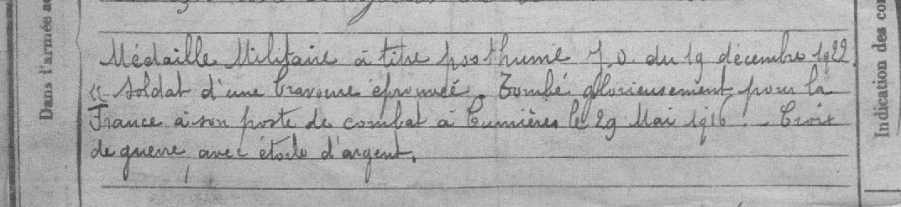 Dans l'armée ac
Médaille Militaire à titre posthume J.O. du 19 décembre 1922.
"Soldat d'une bravoure éprouvée. Tombé glorieusement pour la
France à son poste de combat à Cumières le 29 Mai 1916. - Croix
de guerre avec étoile d'argent.
Indication des co